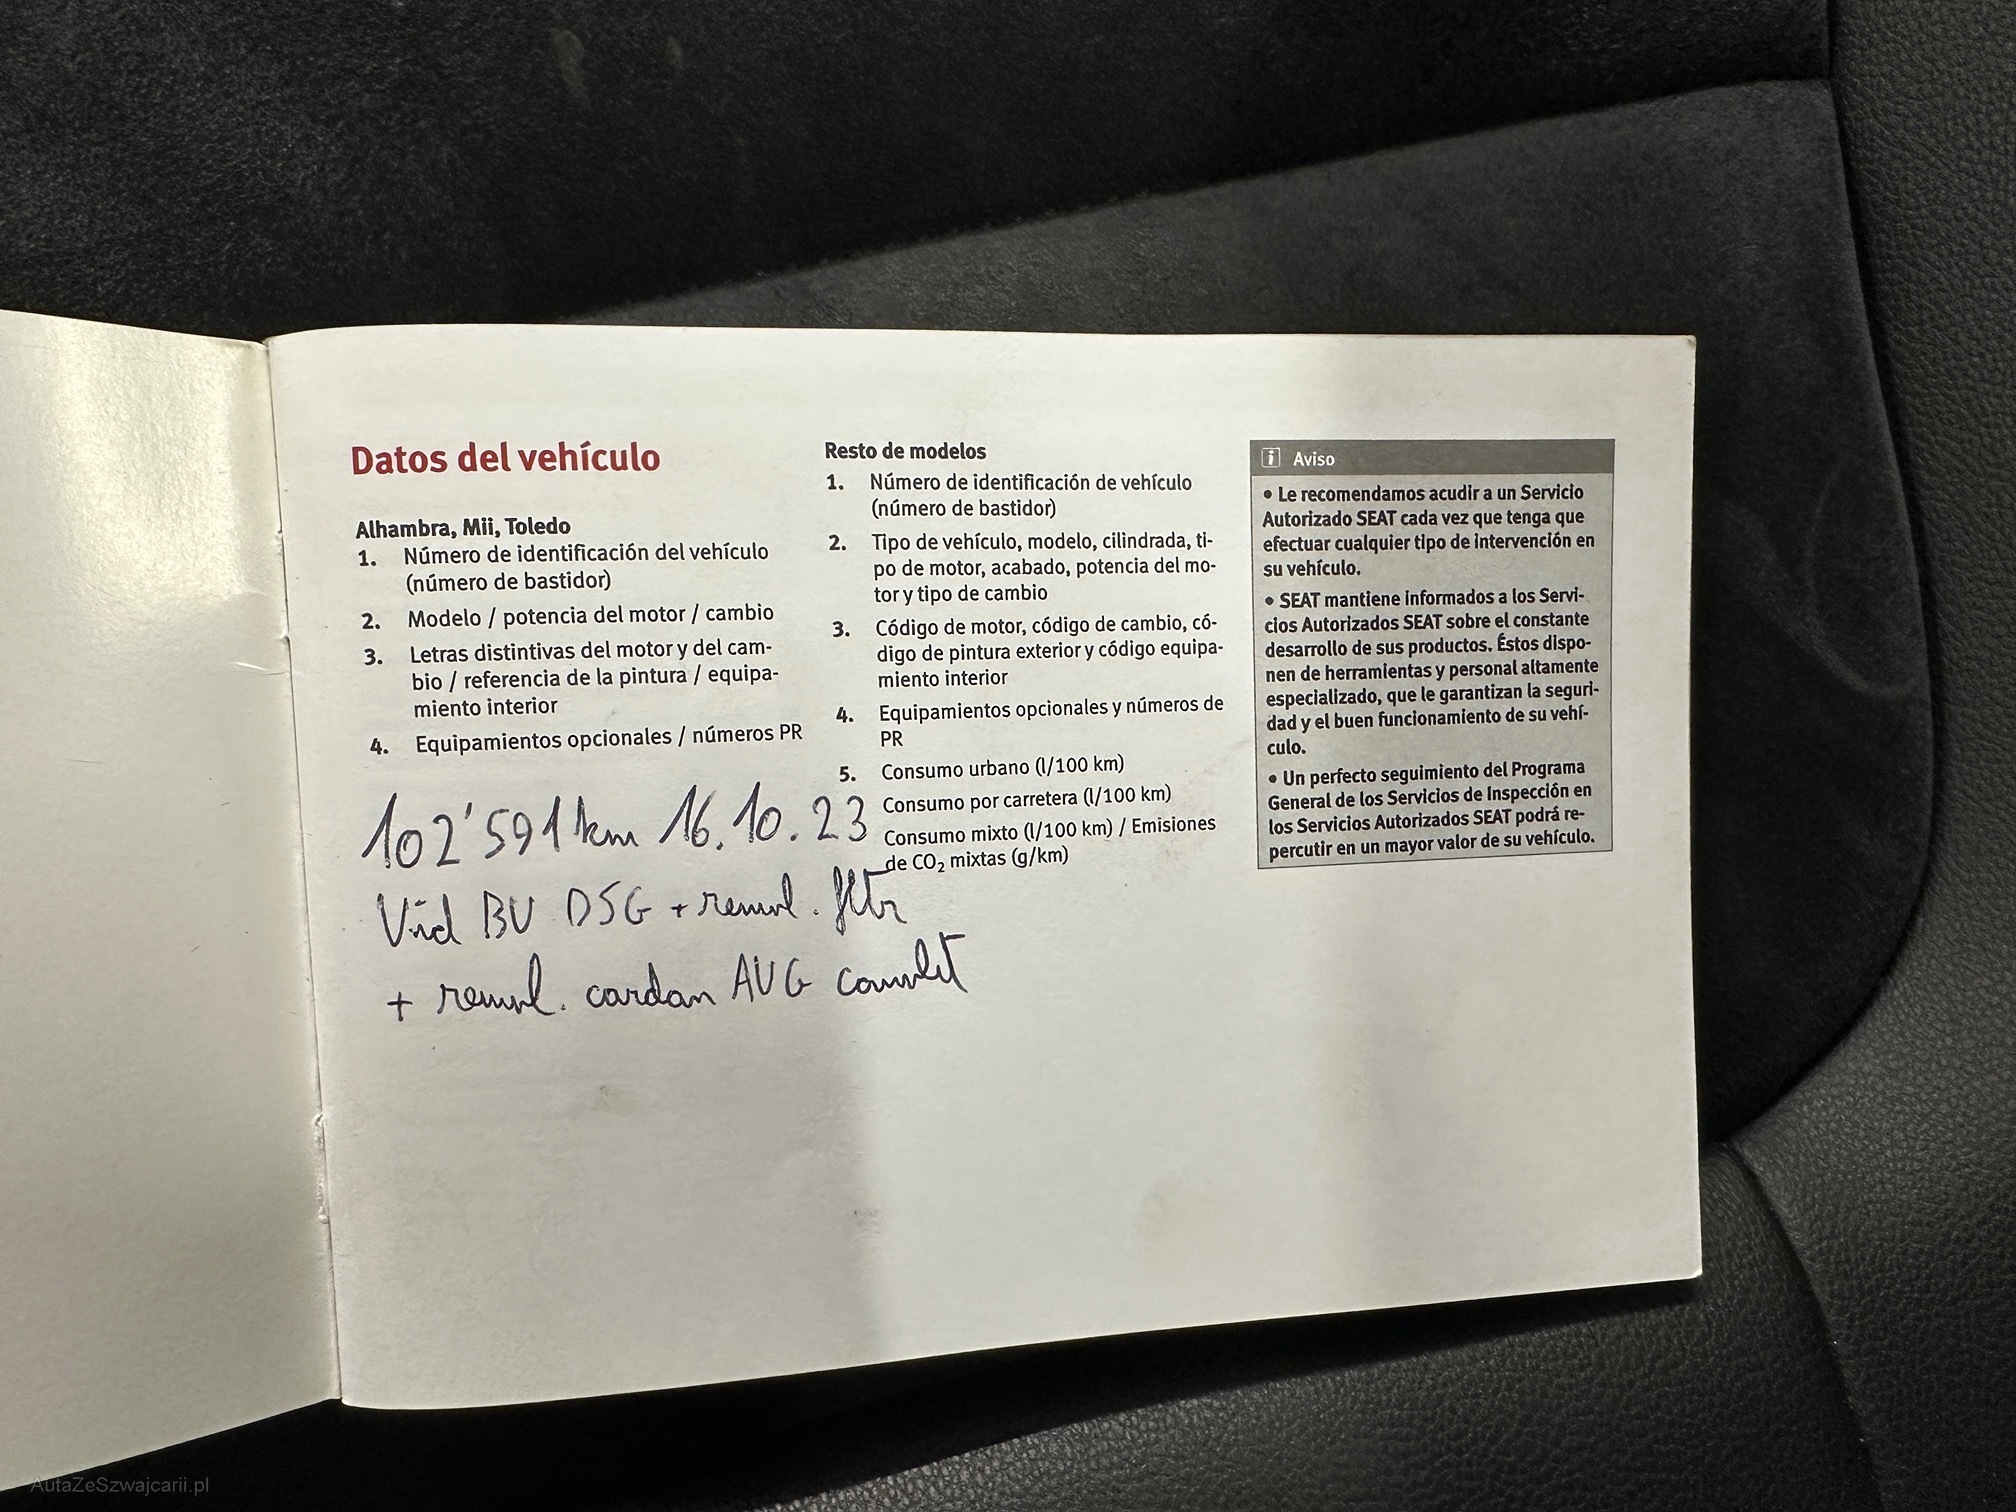 Datos del vehículo
Alhambra, Mii, Toledo
1. Número de identificación del vehículo
(número de bastidor)
2. Modelo / potencia del motor / cambio
3. Letras distintivas del motor y del cam-
bio / referencia de la pintura / equipa-
miento interior
4. Equipamientos opcionales / números PR
102'591 km 16.10.23
Vid BV DSG + rempl. filtr
+ rempl. cardan AVG complet
Resto de modelos
1. Número de identificación de vehículo
(número de bastidor)
2. Tipo de vehículo, modelo, cilindrada, ti-
po de motor, acabado, potencia del mo-
tor y tipo de cambio
3. Código de motor, código de cambio, có-
digo de pintura exterior y código equipa-
miento interior
4. Equipamientos opcionales y números de
PR
5. Consumo urbano (l/100 km)
Consumo por carretera (l/100 km)
Consumo mixto (l/100 km) / Emisiones
de CO2 mixtas (g/km)
i Aviso
• Le recomendamos acudir a un Servicio
Autorizado SEAT cada vez que tenga que
efectuar cualquier tipo de intervención en
su vehículo.
• SEAT mantiene informados a los Servi-
cios Autorizados SEAT sobre el constante
desarrollo de sus productos. Éstos dispo-
nen de herramientas y personal altamente
especializado, que le garantizan la seguri-
dad y el buen funcionamiento de su vehí-
culo.
• Un perfecto seguimiento del Programa
General de los Servicios de Inspección en
los Servicios Autorizados SEAT podrá re-
percutir en un mayor valor de su vehículo.
AutaZeSzwajcarii.pl